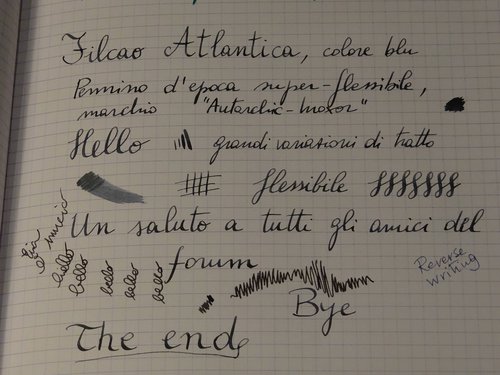 Filcao Atlantica, colore blu
Pennino d'epoca super-flessibile,
marchio "Autarchic-Inoxor"
Hello grandi variazioni di tratto
flessibile ffffffff
Un saluto a tutti gli amici del
forum
bello
bello
bello
bello
bello
Reverse
writing
Bye
The end